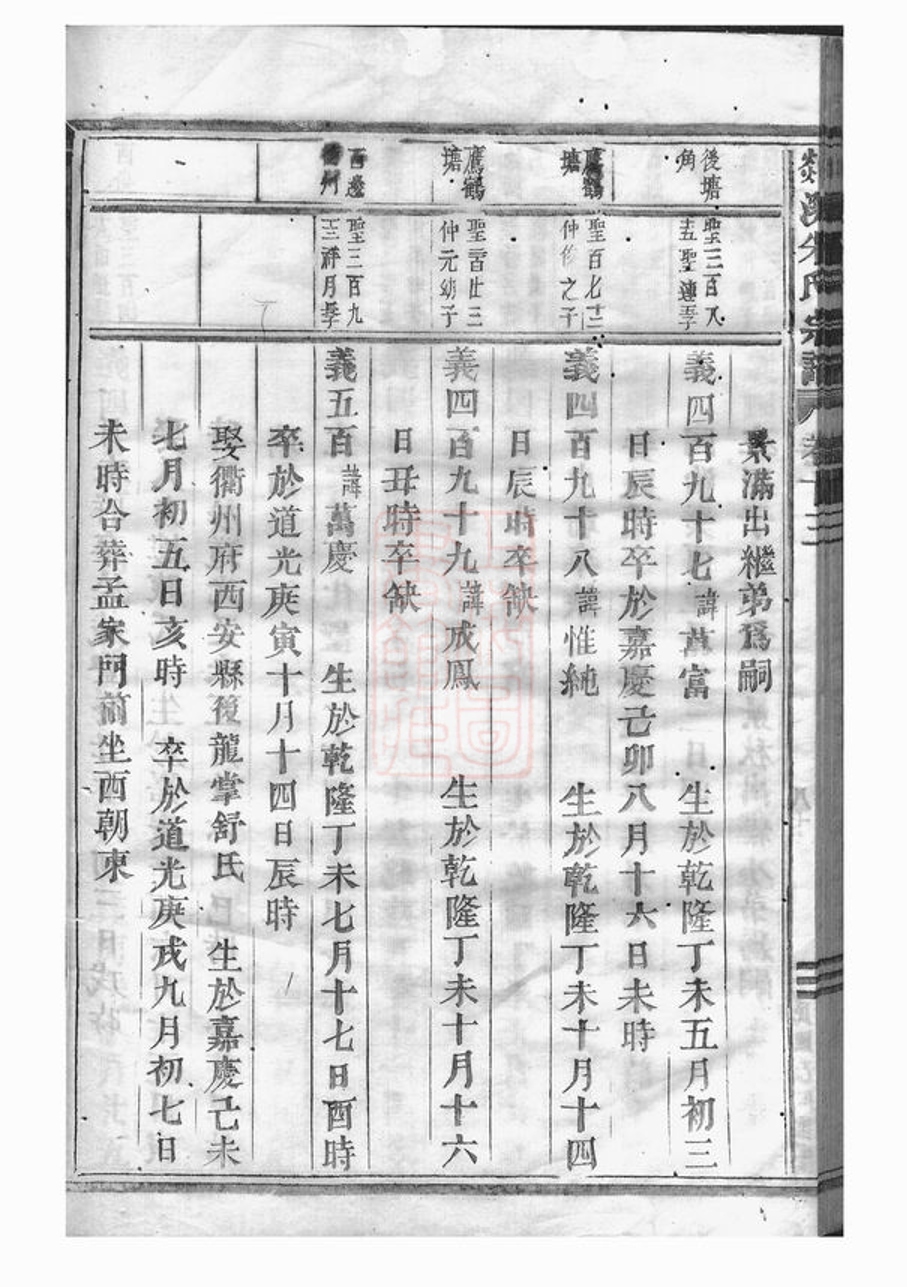 景滿出繼弟爲嗣
後塘
角
聖三百八
五聖連子
義四百九十七諱萬富 生於乾隆丁未五月初三
日辰時卒於嘉慶己卯八月十六日未時
鷹鶴
塘
聖百七十二
仲脩之子
義四百九十八諱惟純 生於乾隆丁未十月十四
日辰時卒缺
鷹鶴
塘
聖二百廿三
仲元幼子
義四百九十九諱成鳳 生於乾隆丁未十月十六
日丑時卒缺
聖三百九
十三祥月子
義五百諱萬慶 生於乾隆丁未七月十七日酉時
卒於道光庚寅十月十四日辰時
娶衢州府西安縣後龍掌舒氏 生於嘉慶己未
七月初五日亥時 卒於道光庚戌九月初七日
未時合葬孟家門前坐西朝東